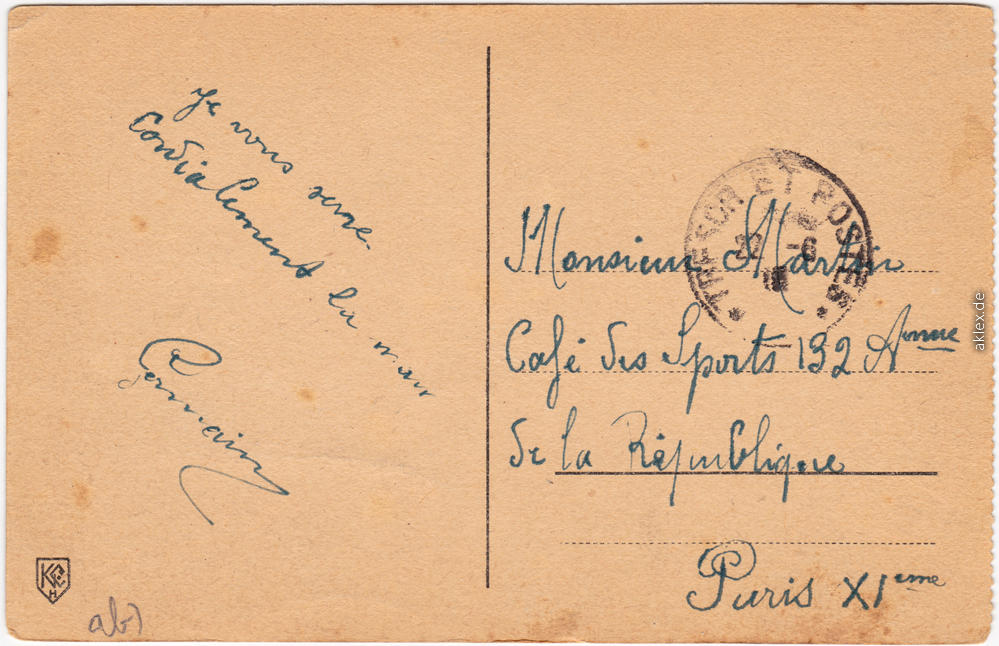 Je vous serre
Cordialement la main
Germain
TRESOR ET POSTES
-6
Monsieur Martin
Café des Sports 132 Anue
de la République
Paris XIeme
H
ab1
aklex.de